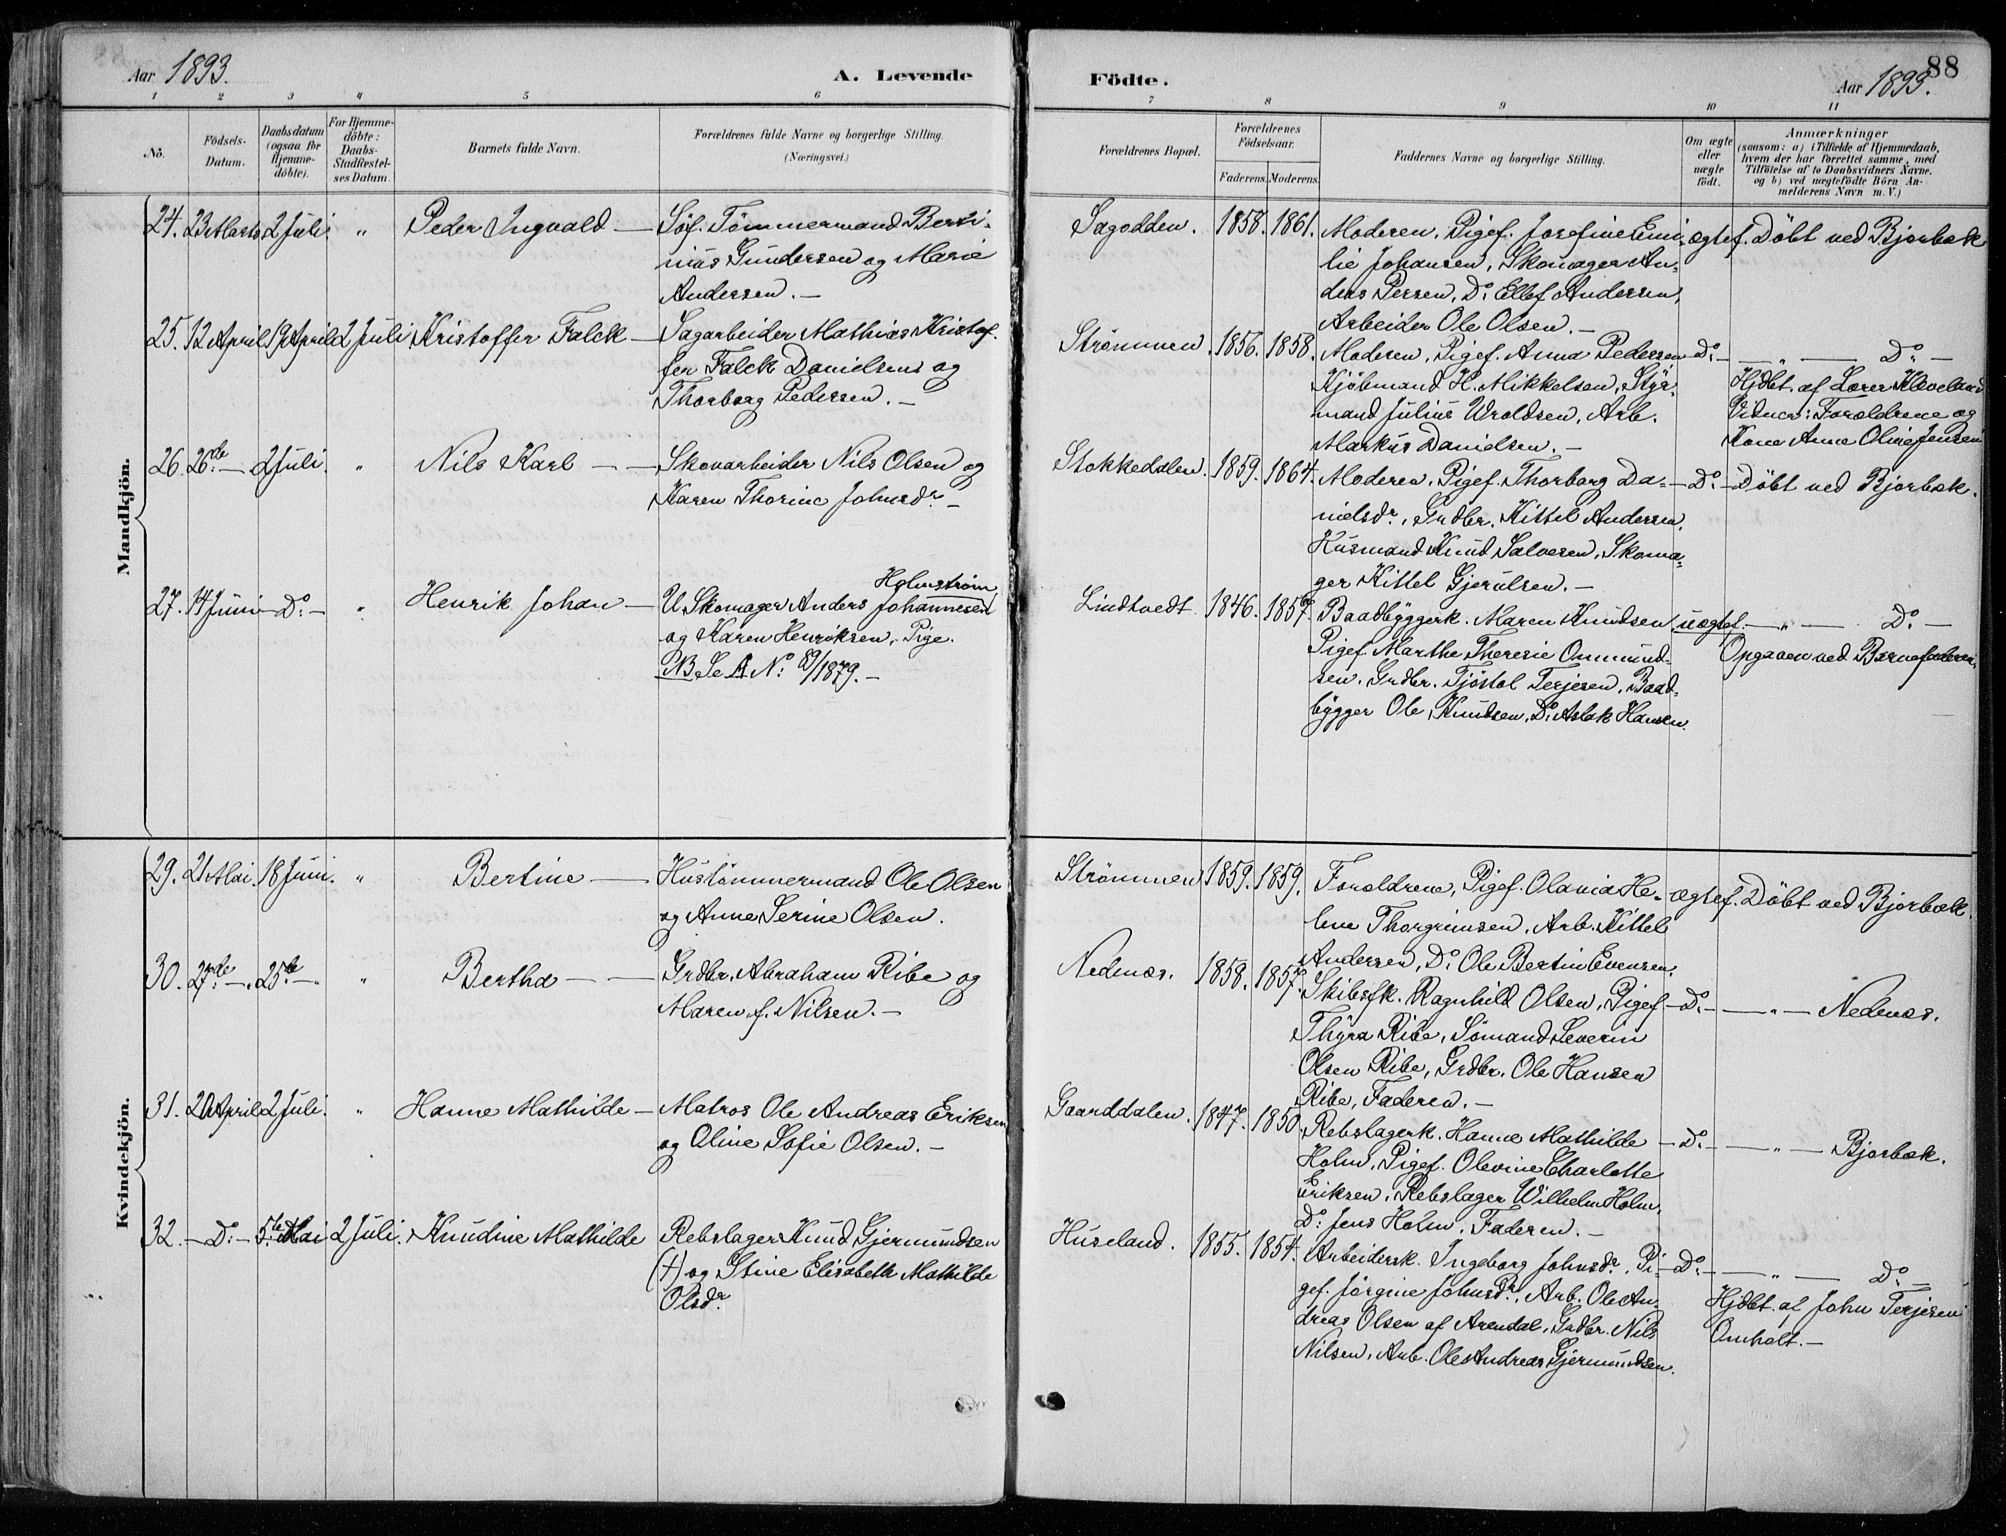 Aar 1893.
A. Levende
Födte.
Aar 1893.
88
1 2 3 4 5 6 7 8 9 10 11
No.
Födsels-
Datum.
Daabsdatum
(ogsaa for
Hjemme-
döbte).
For Hjemme-
döbte:
Daabs-
Stadfæstel-
ses Datum.
Barnets fulde Navn.
Forældrenes fulde Navne og borgerlige Stilling.
(Næringsvei.)
Forældrenes Bopæl.
Forældrenes
Födselsaar.
Faderens. Moderens.
Faddernes Navne og borgerlige Stilling.
Om ægte
eller
uægte
født.
Anmærkninger
(saasom: a) i Tilfælde af Hjemmedaab,
hvem der har forrettet samme, med
Tilföielse af to Daabsvidners Navne.
og b) ved uægtefödte Börn An-
melderens Navn m. V.)
Mandkjön.
24. 23 Marts 2 Juli. " Peder Ingvald — Söf. Tömmermand Berti-
nius Gundersen og Marie
Andersen. —
Sagodden. 1858. 1861. Moderen, Pigef. Josefine Emi-
lie Johansen, Skomager An-
ders Persen, Do. Ellef Andersen,
Arbeider Ole Olsen. —
ægtef. Döbt ved Bjorbæk
25. 12 April 19 April 2 Juli. Kristoffer Falck — Sagarbeider Mathias Kristof-
fer Falck Danielsens og
Thorborg Pedersen. —
Strömmen. 1856. 1858. Moderen, Pigef. Anna Pedersen
Kjöbmand H. Mikkelsen, Styr-
mand Julius Wroldsen, Arb.
Markus Danielsen. —
Do. — — " — Do. —
Hjdbt. af Lærer Kleveland
Vidner: Forældrene og
Kone Anne Oline Jensen
26. 26de — 2 Juli. " Nils Karl — — Skovarbeider Nils Olsen og
Karen Thorine Johnsdr. —
Stokkedalen. 1859. 1864. Moderen, Pigef. Thorborg Da-
nielsdr., Grdbr. Kittel Andersen,
Husmand Knud Salvesen, Skoma-
ger Kittel Gjerulsen. —
— Do. — Döbt ved Bjorbæk.
27. 14 Juni — Do. — " Henrik Johan — U. Skomager Anders Johannesen
Holmström
og Karen Henriksen, Pige.
NB Se A No. 89/1879. —
Lindtvedt. 1846. 1857. Baadbyggerk. Maren Knudsen
Pigef. Marthe Theresie Ommund-
sen, Grdbr. Tjöstol Terjesen, Baad-
bygger Ole Knudsen, Do. Aslak Hansen.
uægtef. — " — Do. —
Opgaven ved Barnefaderen.
Kvindekjön.
29. 21 Mai. 18 Juni. " Bertine — Hustömmermand Ole Olsen
og Anne Serine Olsen.
Strömmen 1859. 1859. Forældrene, Pigef. Olavia He-
lene Thorgrimsen, Arb. Kittel
Andersen, Do. Ole Bertin Evensen.
ægtef. Döbt ved Bjorbæk.
30. 27de — 25de — " Bertha — — Grdbr. Abraham Ribe og
Maren f. Nilsen. —
Nedenæs. 1858. 1857. Skibsfk. Ragnhild Olsen, Pigef.
Thyra Ribe, Sömand Severin
Olsen Ribe, Grdbr. Ole Hansen
Ribe, Faderen. —
— Do. — — " — Nedenæs.
31. 20 April 2 Juli. " Hanne Mathilde — Matros Ole Andreas Eriksen
og Oline Sofie Olsen. —
Gaarddalen. 1847. 1850. Rebslagerk. Hanne Mathilde
Holm, Pigef. Olevine Charlotte
Eriksen, Rebslager Wilhelm Holm,
Do. Jens Holm, Faderen. —
— Do. — — " — Bjorbæk.
32. — Do. — 5te Mai 2 Juli. Knudine Mathilde Rebslager Knud Gjermundsen
(†) og Stine Elisabeth Mathilde
Olsdr.
Huseland. 1855. 1854. Arbeidersk. Ingeborg Johnsdr., Pi-
gef. Jörgine Johnsdr., Arb. Ole An-
dreas Olsen af Arendal, Grdbr. Nils
Nilsen, Arb. Ole Andreas Gjermundsen.
— Do. — — " — Do. —
Hjdbt. af John Terjesen
Omholt. —